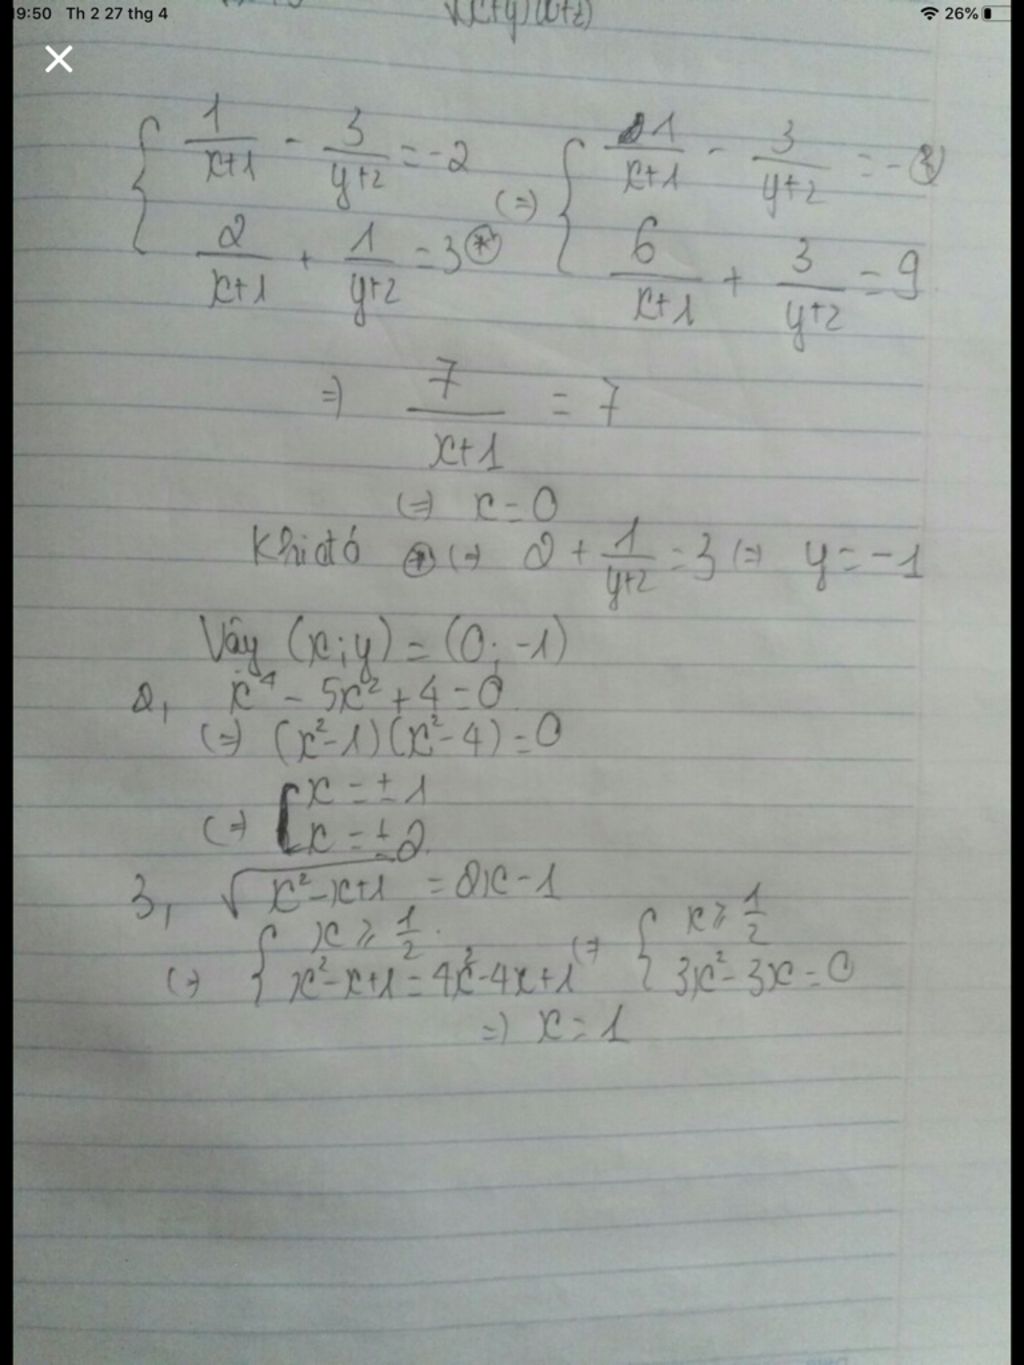 9:50 Th 2 27 thg 4 26%
√(x+y)(x+z)
{ 1/(x+1) - 3/(y+2) = -2 (=) { 1/(x+1) - 3/(y+2) = -2
{ 2/(x+1) + 1/(y+2) = 3 (*) { 6/(x+1) + 3/(y+2) = 9
=) 7/(x+1) = 7
(=) x = 0
Khi đó (*) (=) 2 + 1/(y+2) = 3 (=) y = -1
Vậy (x;y) = (0; -1)
2, x⁴ - 5x² + 4 = 0
(=) (x²-1)(x²-4) = 0
(=) [ x = ±1
[ x = ±2
3, √(x²-x+1) = 2x-1
(=) { x ≥ 1/2 (=) { x ≥ 1/2
{ x²-x+1 = 4x²-4x+1 { 3x²-3x = 0
=) x = 1